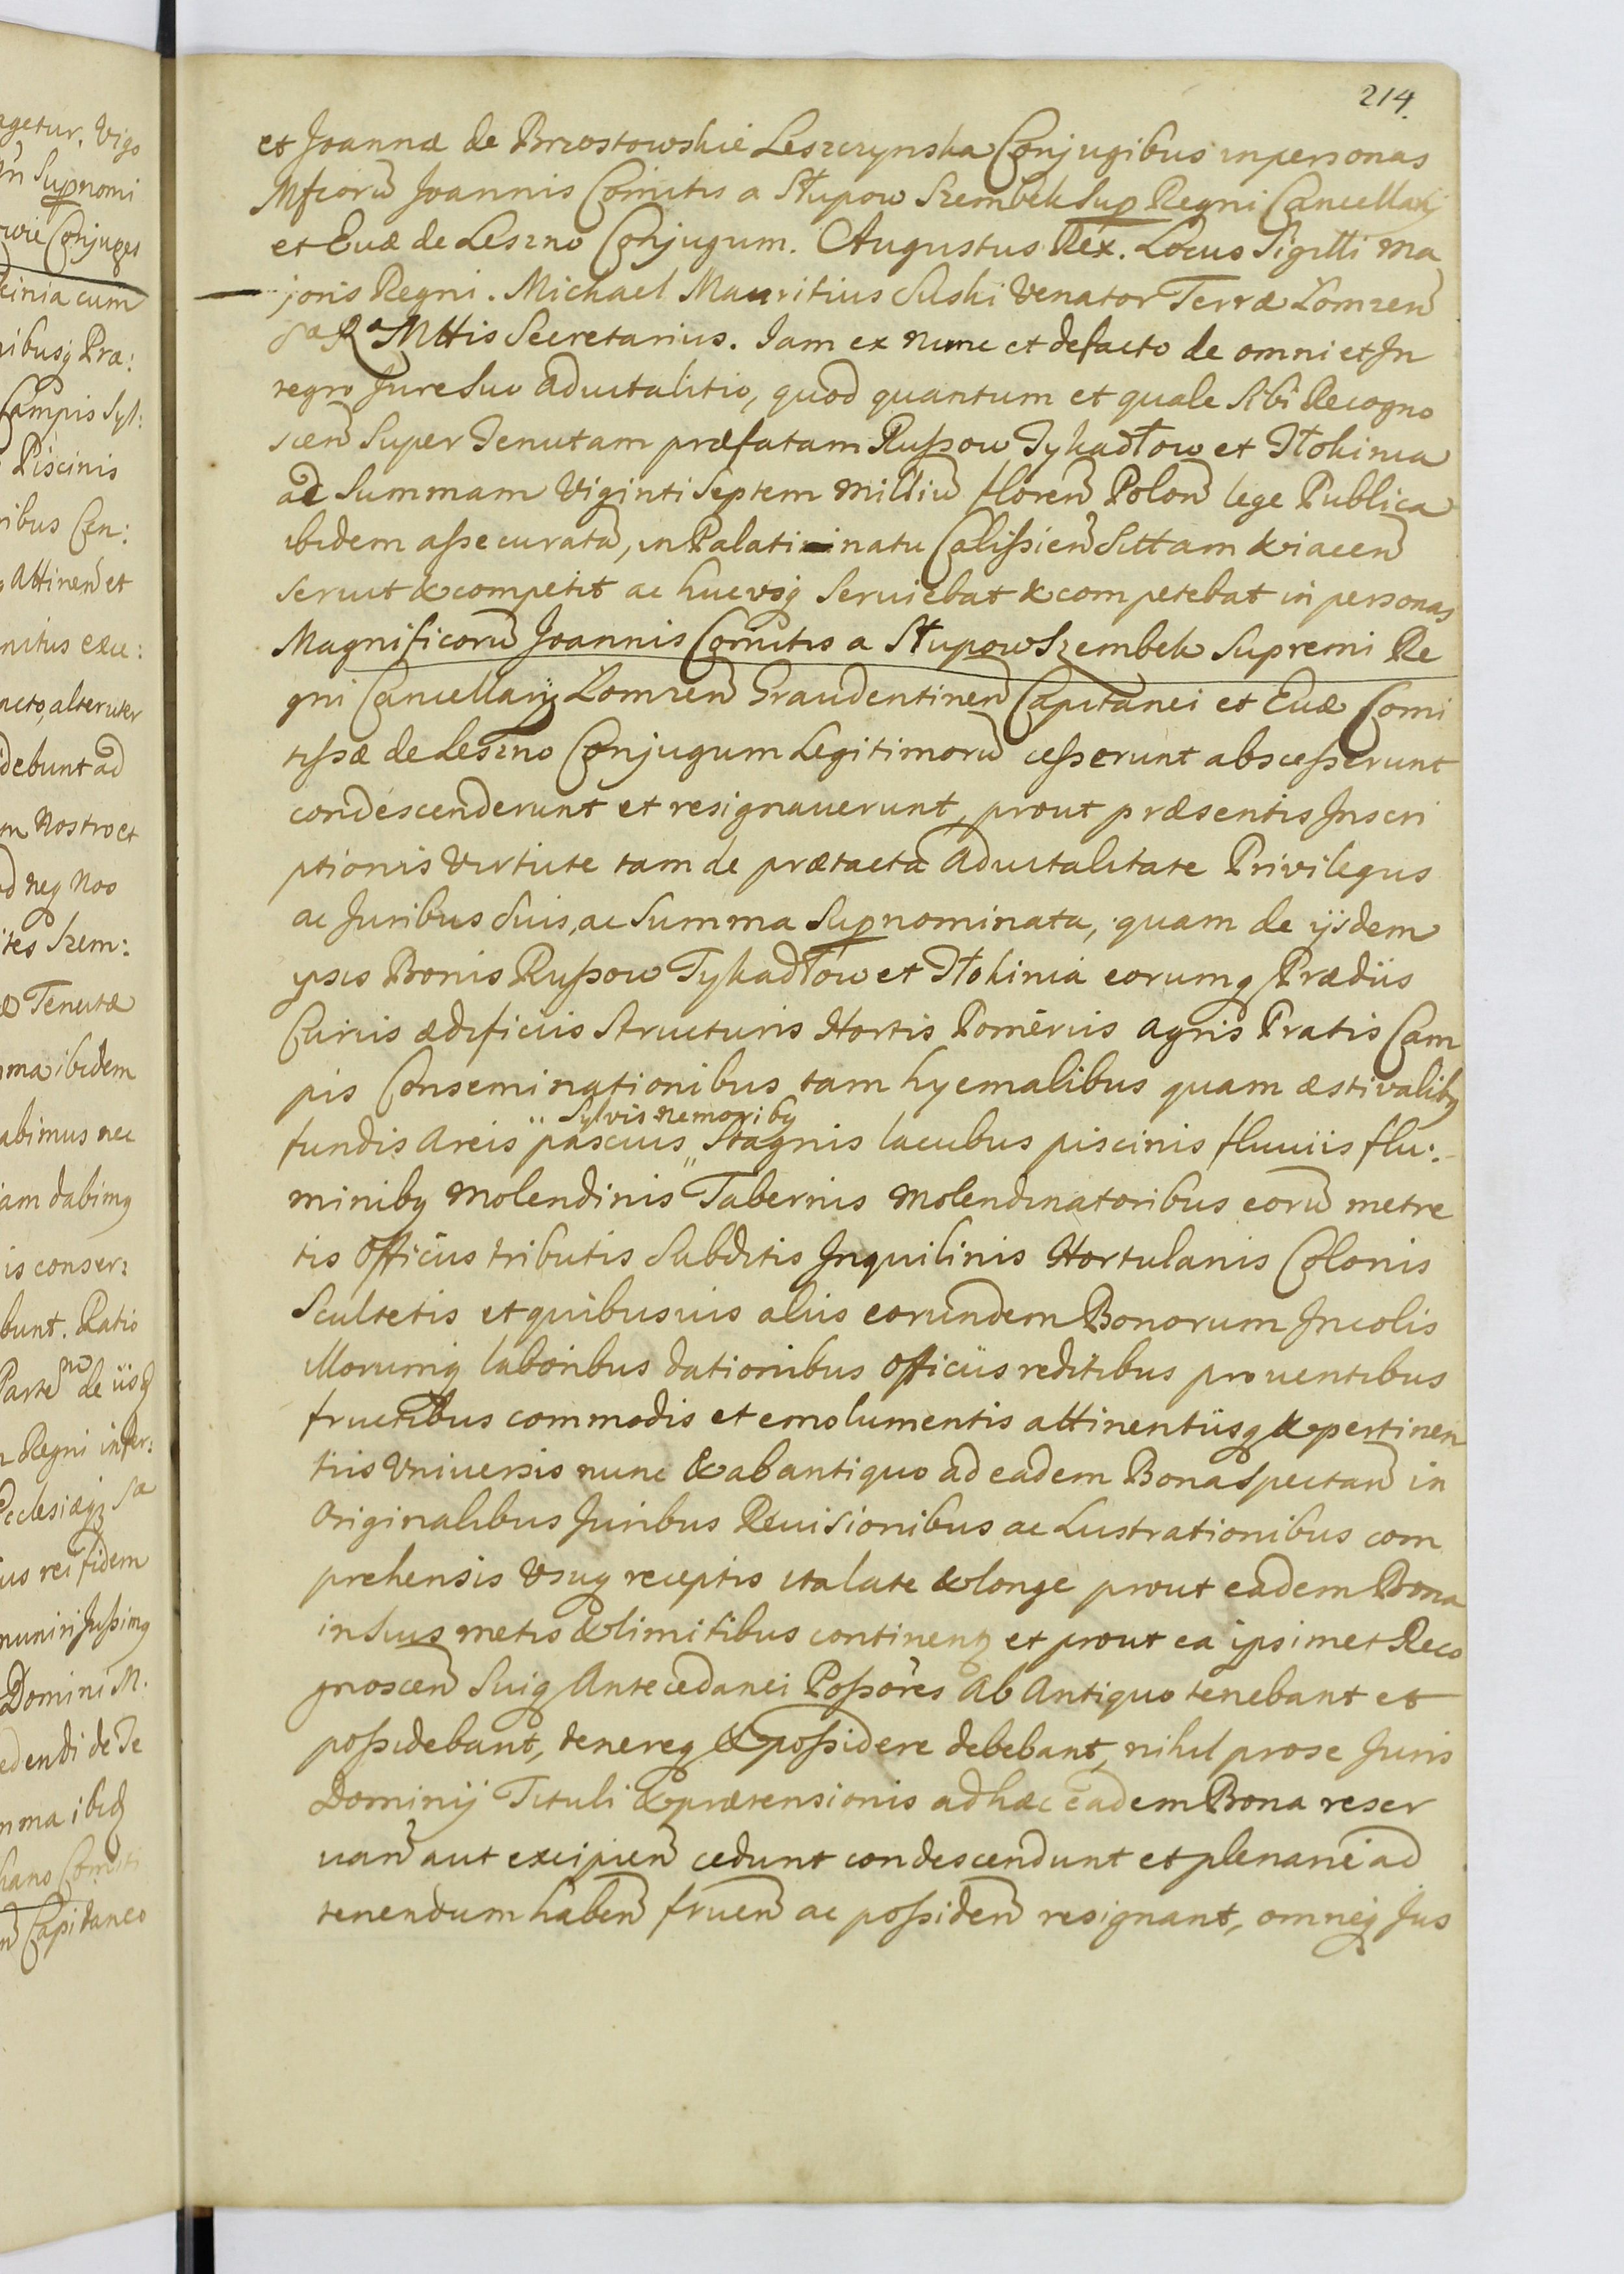 214.
et Joannæ de Brzostowskie Leszczynska Conjugibus in personas
Mfcorũ Joannis Comitis a Słupow Szembek Sup Regni Cancellarij
et Euæ de Leszno Conjugum. Augustus Rex. Locus Sigilli Ma
joris Regni. Michael Mauritius Suski Venator Terræ Łomzen̄
Sæ Ræ Mttis Secretarius. Jam ex nunc et defacto de omni et In
tegro Jure Suo aduitalitio, quod quantum et quale Sibi Recogno
scen̄ Super Tenutam præfatam Rußow Tykadłow et Tłokinia
ad Summam Viginti Septem Milliũ floren̄ Polon̄ lege Publica
ibidem aßecuratã, in Palatinatu Calißien̄ Sittam & iacen̄
seruit & competit ac hucusq̨ Seruiebat & competebat in personas
Magnificorũ Joannis Comitis a Słupow Szembek Supremi Re
gni Cancellarij Łomzen̄ Graudentinen̄ Capitanei et Euæ Comi
tißæ de Leszno Conjugum Legitimorũ ceßerunt absceßerunt
condescenderunt et resignauerunt, prout præsentis Inscri
ptionis Virtute tam de prætacta Aduitalitate Privilegiis
ac Juribus Suis, ac Summa Supnominata, quam de ijsdem
ipsis Bonis Rußow Tykadłow et Tłokinia eorumq̨ Prædiis
Curiis ædificiis Structuris Hortis Pomeriis agris Pratis Cam
pis Conseminationibus tam hyemalibus quam æstivalibq̨
Sylvis nemoribq̨
fundis Areis pascuis Stagnis lacubus piscinis fluuiis flu:
minibq̨ Molendinis Tabernis Molendinatoribus eorũ metre
tis Officiis tributis Subditis Inquilinis Hortulanis Colonis
Scultetis et quibusuis aliis eorundem Bonorum Incolis
Illorumq̨ laboribus dationibus officiis reditibus prouentibus
fructibus commodis et emolumentis attinentiisq̨ & pertinen
tiis Vniuersis nunc & ab antiquo ad eadem Bona Spectan̄ in
Originalibus Juribus Reuisionibus ac Lustrationibus com
prehensis Vsuq̨ receptis ita late & longe prout eadem Bona
in Suis metis & limitibus continenq̨ et prout ea ipsimet Reco
gnoscen̄ Suiq̨ Antecedanei Poßores Ab Antiquo tenebant et
poßidebant, tenereq̨ & poßidere debebant, nihil pro se Juris
Dominij Tituli & prætensionis ad hæc eadem Bona reser
uan̄ aut excipien̄ cedunt condescendunt et plenarie ad
tenendum haben̄ fruen̄ ac poßiden̄ resignant, omneq̨ Jus